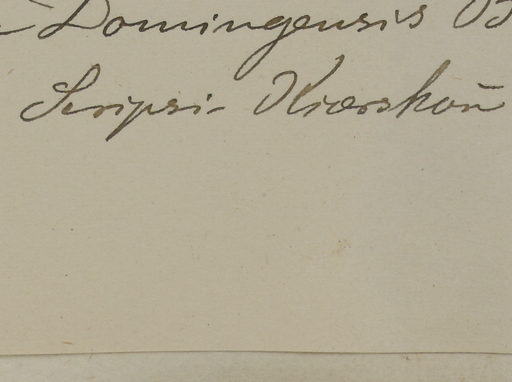 Domingensis
Scripsi Kiærskou